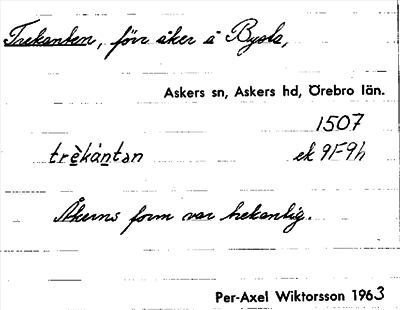 Trekanten, förr åker å Bysta,
Askers sn, Askers hd, Örebro län.
1507
trὲkàntən ek 9F9h
Åkerns form var trekantig.
Per-Axel Wiktorsson 1963